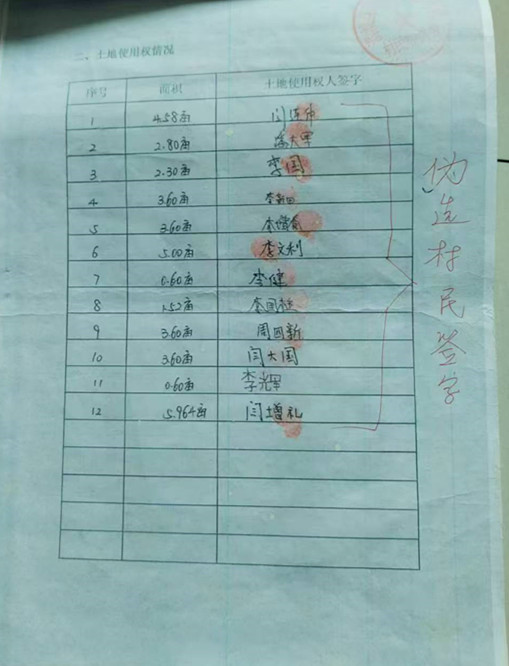 二、土地使用权情况
序号 面积 土地使用权人签字
1 4.58亩 闫
2 2.80亩 大军
3 2.30亩 李国
4 3.60亩 李
5 3.60亩 李
6 5.00亩 李文利
7 0.60亩 李健
8 1.52亩 李国
9 3.60亩 周国新
10 3.60亩 闫大国
11 0.60亩 李辉
12 5.964亩 闫增礼
伪造村民签字